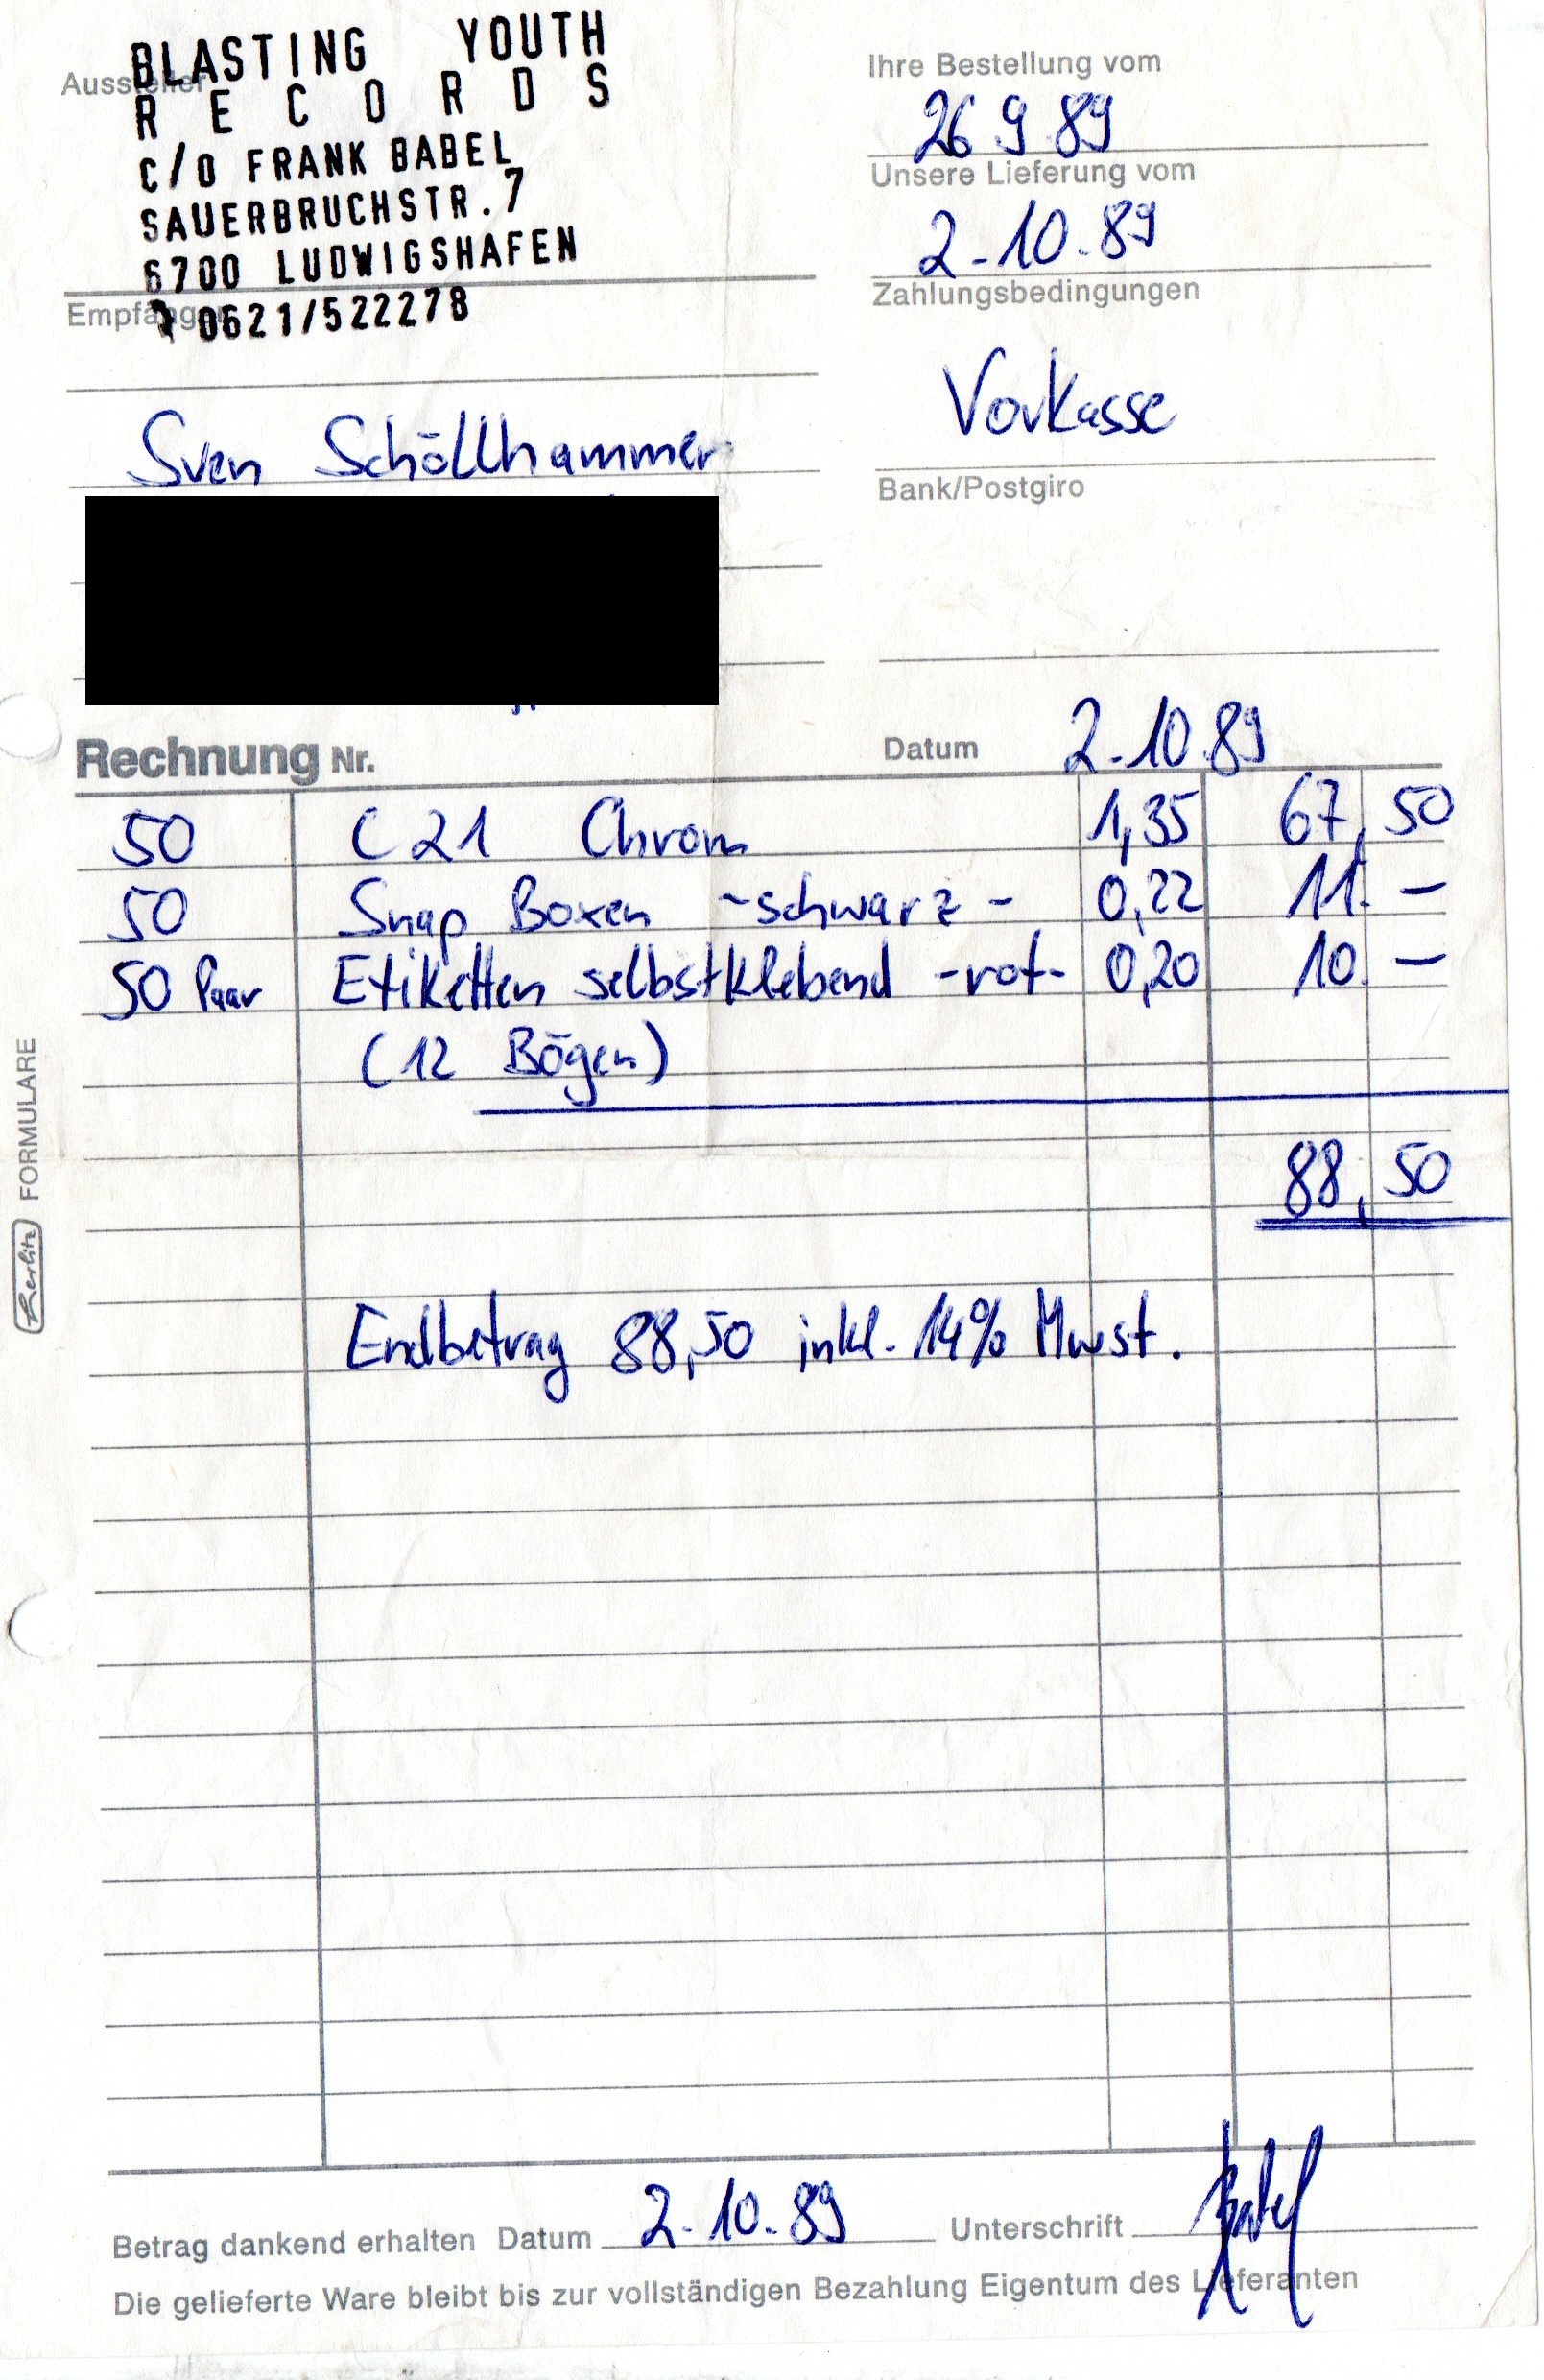 Aussteller
BLASTING YOUTH
RECORDS
C/O FRANK BABEL
SAUERBRUCHSTR. 7
6700 LUDWIGSHAFEN
0621/522278
Empfänger
Sven Schöllhammer
Ihre Bestellung vom
26 9 89
Unsere Lieferung vom
2-10.89
Zahlungsbedingungen
Vorkasse
Bank/Postgiro
Rechnung Nr.
Datum 2-10.89
50 C21 Chrom 1,35 67,50
50 Snap Boxen -schwarz- 0,22 11.-
50 Paar Etiketten selbstklebend -rot- 0,20 10.-
(12 Bögen)
88,50
Endbetrag 88,50 inkl. 14% Mwst.
Berlitz FORMULARE
Betrag dankend erhalten Datum 2-10.89 Unterschrift Babel
Die gelieferte Ware bleibt bis zur vollständigen Bezahlung Eigentum des Lieferanten